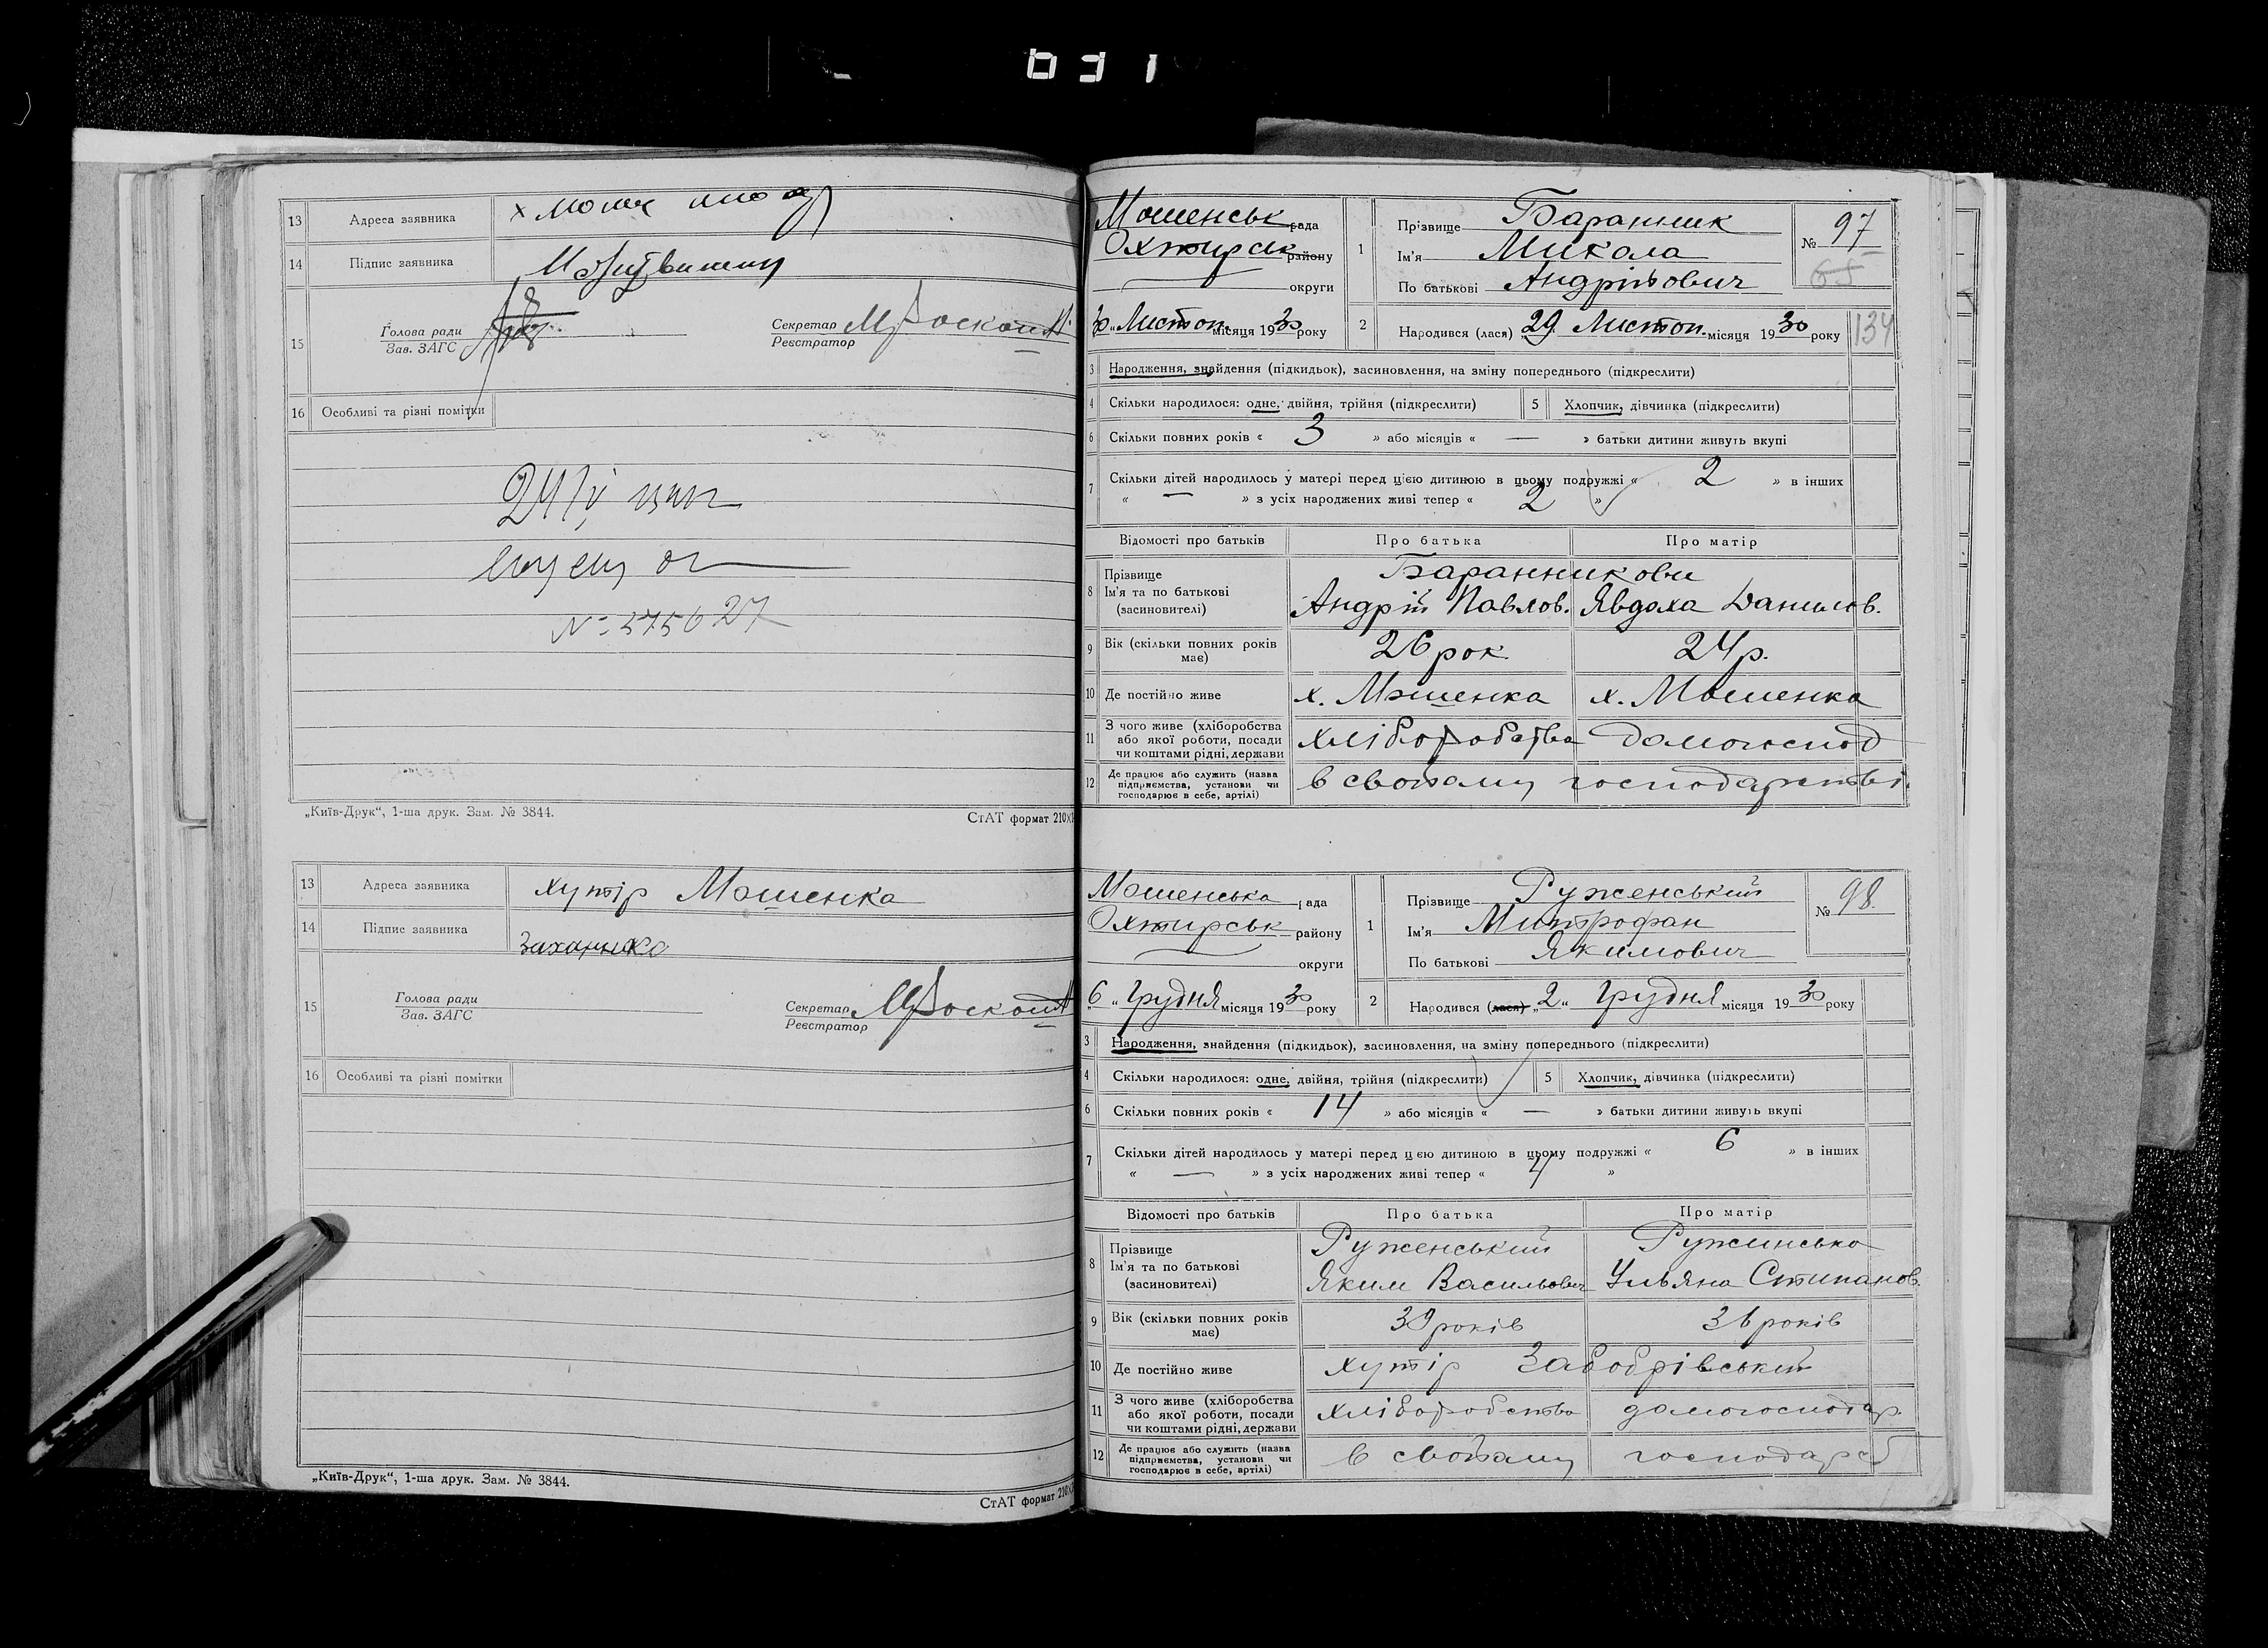 031
13 Адреса заявника х
14 Підпис заявника
15 Голова ради Зав. ЗАГС Секретар Реєстратор
16 Особливі та різні помітки
24/IV
№ 575627
„Київ-Друк“, 1-ша друк. Зам. № 3844.
СтАТ формат 210
13 Адреса заявника хутір Мошенка
14 Підпис заявника
15 Голова ради Зав. ЗАГС Секретар Реєстратор
16 Особливі та різні помітки
„Київ-Друк“, 1-ша друк. Зам. № 3844.
СтАТ формат 210
Мошенськ рада
Охтирськ району
округи
30 „ Листоп. місяця 1930 року
1 Прізвище Баранник
Ім'я Микола
По батькові Андрійович
№ 97
65
2 Народився (лася) „29 Листоп. місяця 1930 року
134
3 Народження, знайдення (підкидьок), засиновлення, на зміну попереднього (підкреслити)
4 Скільки народилося: одне, двійня, трійня (підкреслити) 5 Хлопчик, дівчинка (підкреслити)
6 Скільки повних років « 3 » або місяців « — » батьки дитини живуть вкупі
7 Скільки дітей народилось у матері перед цією дитиною в цьому подружжі « 2 » в інших
« — » з усіх народжених живі тепер « 2 »
Відомості про батьків Про батька Про матір
8 Прізвище Баранникови
Ім'я та по батькові Андрій Павлов. Явдоха Данилов.
(засиновителі)
9 Вік (скільки повних років має) 26 рок. 24 р.
10 Де постійно живе х. Мошенка х. Мошенка
11 З чого живе (хліборобства або якої роботи, посади чи коштами рідні, держави хліборобства домогоспод
12 Де працює або служить (назва підприємства, установи чи господарює в себе, артілі) в свойому господарстві.
Мошенська рада
Охтирськ району
округи
„6„ Грудня місяця 1930 року
1 Прізвище Руженський
Ім'я Митрофан
По батькові Якимович
№ 98
2 Народився (лася) „2„ Грудня місяця 1930 року
3 Народження, знайдення (підкидьок), засиновлення, на зміну попереднього (підкреслити)
4 Скільки народилося: одне, двійня, трійня (підкреслити) 5 Хлопчик, дівчинка (підкреслити)
6 Скільки повних років « 14 » або місяців « — » батьки дитини живуть вкупі
7 Скільки дітей народилось у матері перед цією дитиною в цьому подружжі « 6 » в інших
« — » з усіх народжених живі тепер « 4 »
Відомості про батьків Про батька Про матір
8 Прізвище Руженський Руженсько
Ім'я та по батькові Яким Васильович Ульяна Стипанов.
(засиновителі)
9 Вік (скільки повних років має) 39 років 36 років
10 Де постійно живе хутір Забобрівський
11 З чого живе (хліборобства або якої роботи, посади чи коштами рідні, держави хліборобство домогосподар.
12 Де працює або служить (назва підприємства, установи чи господарює в себе, артілі) в свойому господарс